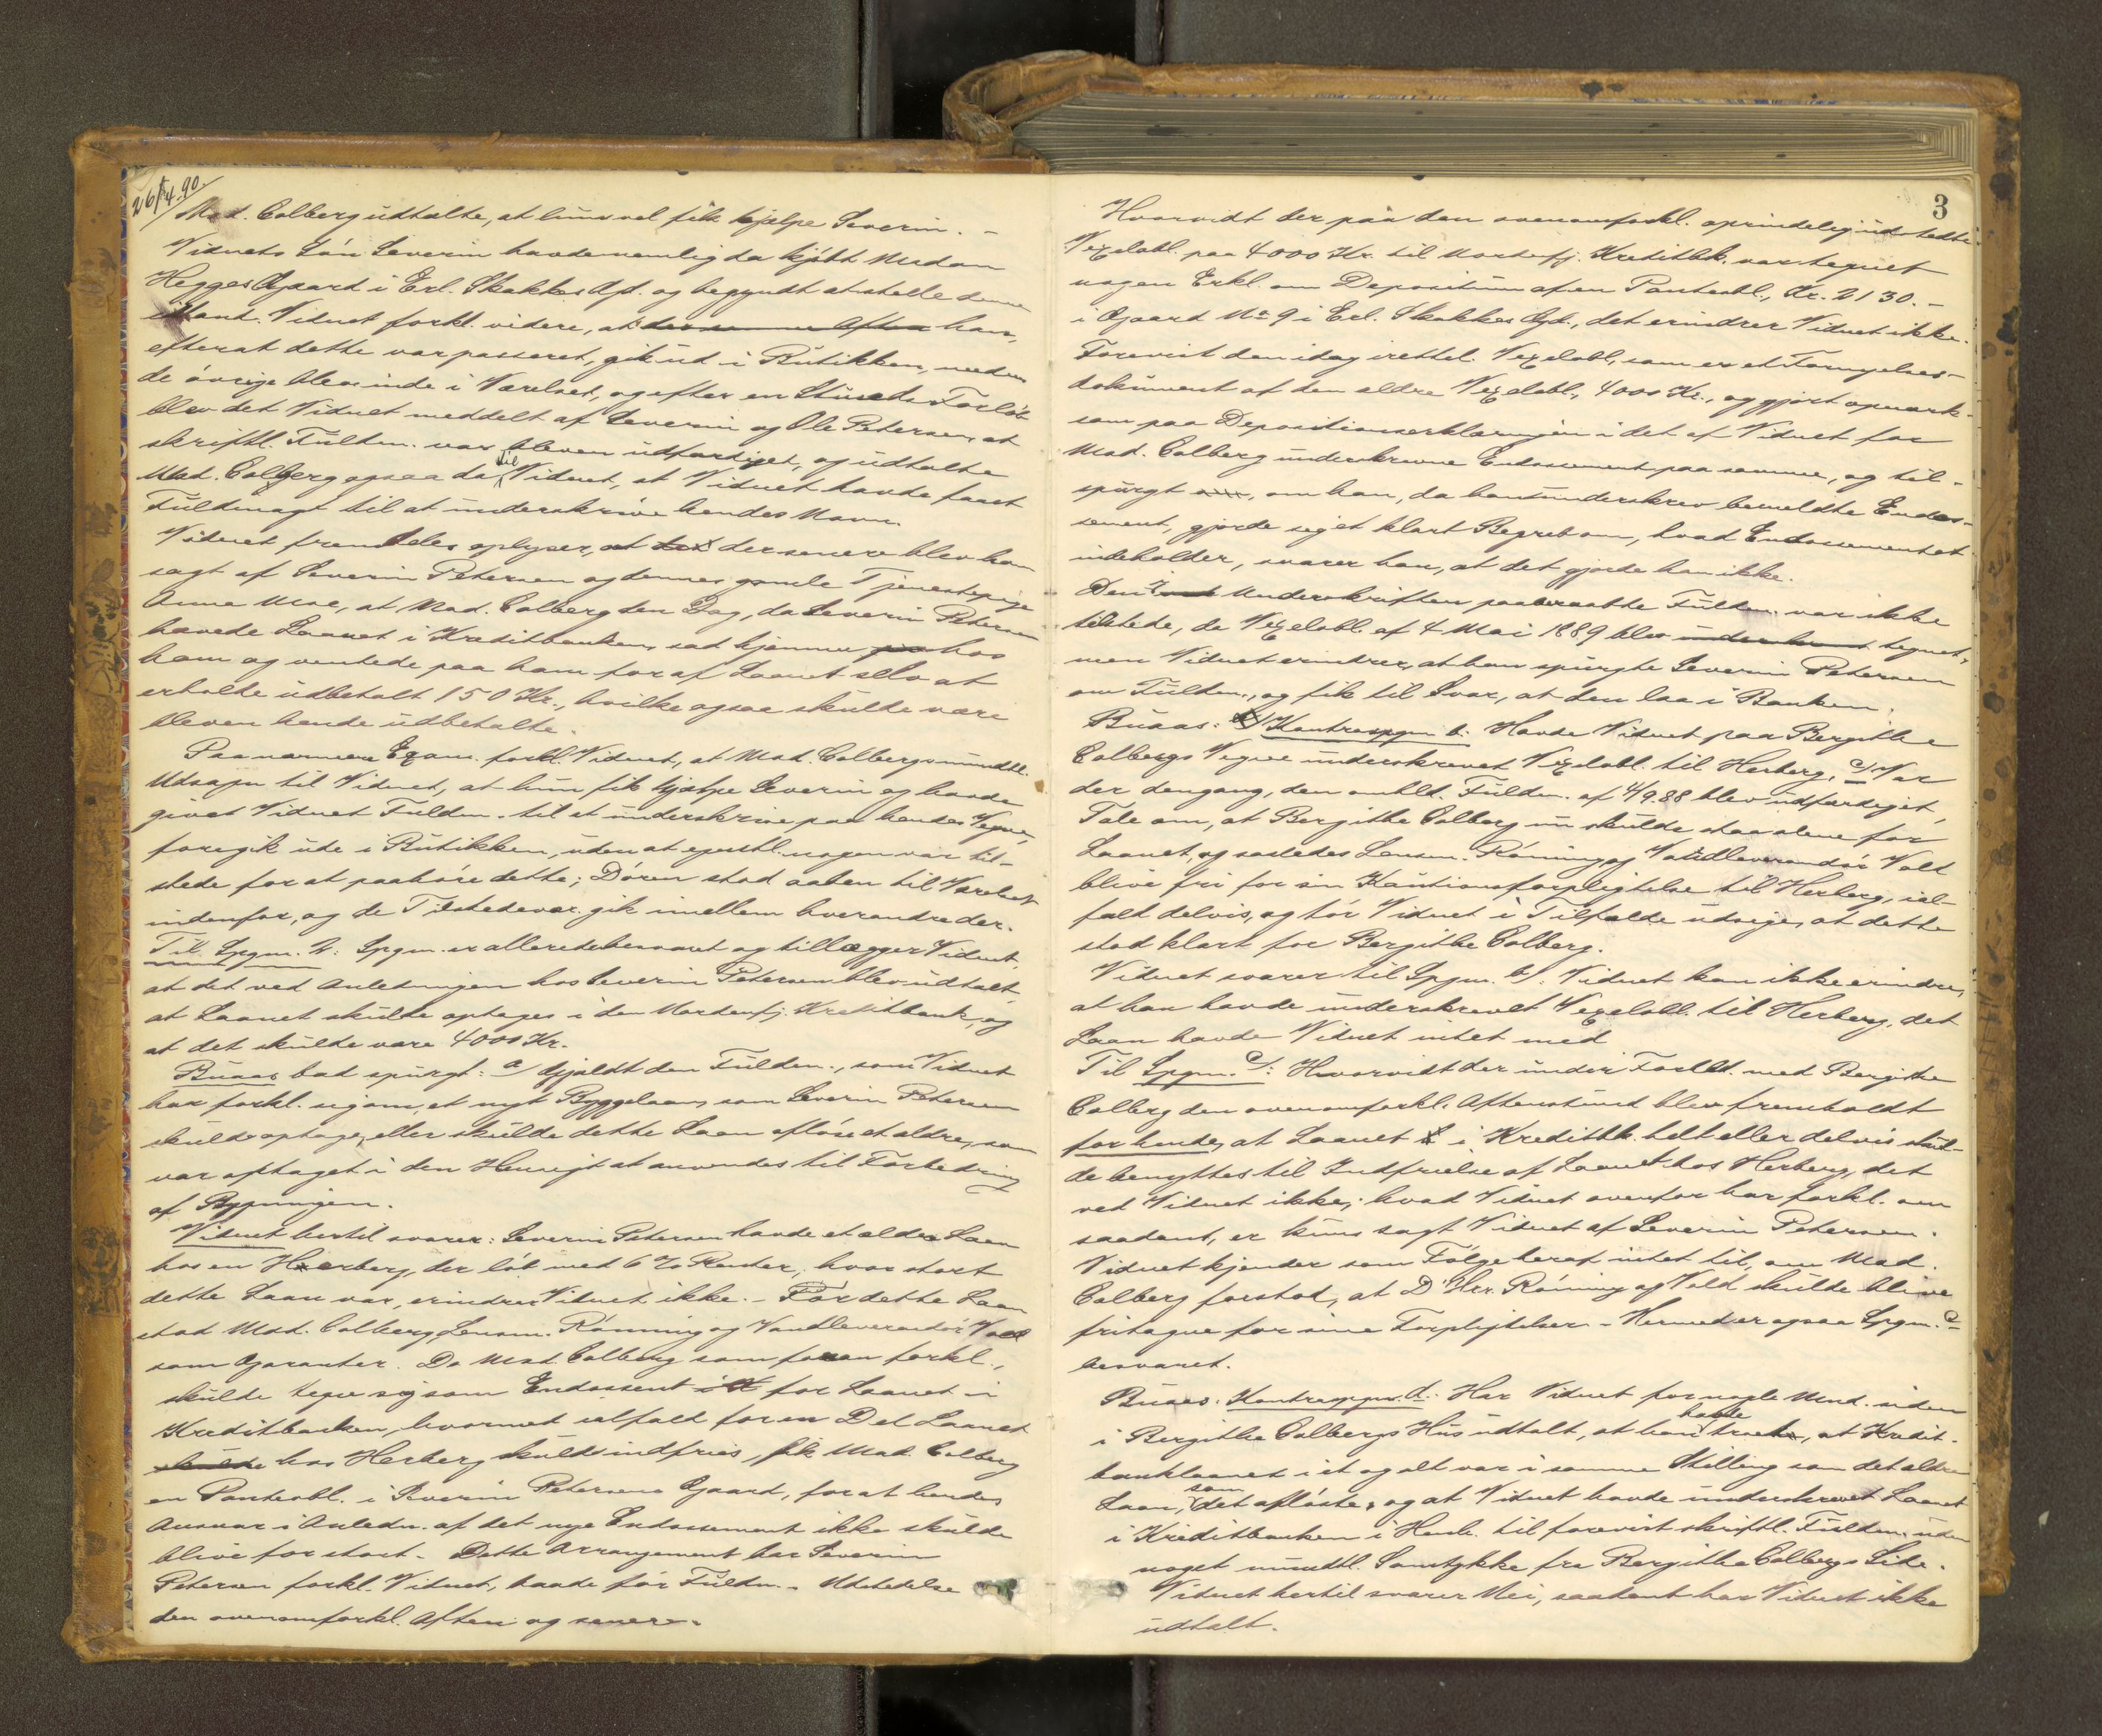 26/4.90.
Mad. Colberg udtalte, at hun vel fik hjælpe Severin. –
Vidnets Søn Severin havde nemlig da kjøbt Madam
Hegges Gaard i Erl. Skakkes Gd. og begyndt at stelle denne
istand. Vidnet forkl. videre, at den samme Aften han,
efterat dette var passeret, gik ud i Butikken, medens
de øvrige blev inde i Værelset, og efter en Stunds Forløb
blev det Vidnet meddelt af Severin og Ole Petersen, at
skriftl. Fuldm. var bleven udfærdiget, og udtalte
Mad. Colberg ogsaa da til Vidnet, at Vidnet havde faaet
Fuldmagt til at underskrive hendes Navn.
Vidnet fremdeles oplyser, at det der senere blev ham
sagt af Severin Petersen og dennes gamle Tjenestepige
Anne Moe, at Mad. Colberg den Dag, da Severin Petersen
hævede Laanet i Kreditbanken, sad hjemme paa hos
ham og ventede paa ham for af Laanet selv at
erholde udbetalt 150 Kr., hvilke ogsaa skulde være
bleven hende udbetalte.
Paa nærmere Exam. forkl. Vidnet, at Mad. Colbergs mundtl.
Udsagn til Vidnet, at hun fik hjælpe Severin og havde
givet Vidnet Fuldm. til at underskrive paa hendes Vegne,
foregik ude i Butikken, uden at egentl. nogen var til-
stede for at paahøre dette; Døren stod aaben til Værelset
indenfor, og de Tilstedevær. gik imellem hverandre der.
Til Spgm. 4: Spgm. er allerede besvaret og tillægger Vidnet,
at det ved Anledningen hos Severin Petersen blev udtalt,
at Laanet skulde optages i den Nordenfj. Kreditbank, og
at det skulde være 4000 Kr.
Buaas bad spurgt: a/ Gjaldt den Fuldm., som Vidnet
har forkl. sig om, et nyt Byggelaan, som Severin Petersen
skulde optage, eller skulde dette Laan afløse et ældre, som
var optaget i den Hensigt at anvendes til Forbedring
af Bygningen.
Vidnet hertil svarer: Severin Petersen havde et ældre Laan
hos en Herberg, der løb med 6 % Renter; hvor stort
dette Laan var, erindrer Vidnet ikke. – For dette Laan
stod Mad. Colberg, Lensm. Rønning og Vandleverandør Vold
som Garanter. Da Mad. Colberg som foran forkl.,
skulde tegne sig som Endossent i et for Laanet i
Kreditbanken, hvormed ialfald for en Del Laanet
skulde hos Herberg skulde indfries, fik Mad. Colberg
en Panteobl. i Severin Petersens Gaard, for at hendes
Ansvar i Anledn. af det nye Endossement ikke skulde
blive for stort. – Dette Arrangement har Severin
Petersen forkl. Vidnet, baade før Fuldm.s Udstedelse
den ovenomforkl. Aften og senere.
3
Hvorvidt der paa den ovenomforkl. oprindelig udstedte
Vexelobl. paa 4000 Kr. til Nordenfj. Kreditbk. var tegnet
nogen Erkl. om Depositum af en Panteobl., Kr. 2130. –
i Gaard No 9 i Erl. Skakkes Gd., det erindrer Vidnet ikke.
Forevist den idag irettel. Vexelobl., som er et Fornyelses-
dokument af den ældre Vexelobl., 4000 Kr., og gjort opmærk-
som paa Depositionserklæringen i det af Vidnet for
Mad. Colberg underskrevne Endossement paa samme, og til-
spurgt, om han, da han underskrev bemeldte Endos-
sement, gjorde sig et klart Begreb om, hvad Endossementet
indeholder, svarer han, at det gjorde han ikke.
Den i Underskriften paaberaabte Fuldm. var ikke
tilstede, da Vexelobl. af 4 Mai 1889 blev tegnet,
men Vidnet erindrer, at han spurgte Severin Petersen
om Fuldm., og fik til Svar, at den laa i Banken.
Buaas: Kontraspgm b: Havde Vidnet paa Bergithe
Colbergs Vegne underskrevet Vexelobl. til Herberg. c/ Var
der dengang, den omhdl. Fuldm. af 4/9.88 blev udfærdiget,
Tale om, at Bergithe Colberg nu skulde staa alene for
Laanet, og saaledes Lensm. Rønning og Vandleverandør Vold
blive fri for sin Kautionsforpligtelse til Herberg, ial-
fald delvis, og tør Vidnet i Tilfælde udsige, at dette
stod klart for Bergithe Colberg.
Vidnet svarer til Spgm. b/: Vidnet kan ikke erindre,
at han havde underskrevet Vexelobl. til Herberg, det
Laan havde Vidnet intet med
Til Spgm. c/: Hvorvidt der under Forhdl. med Bergithe
Colberg den ovenomforkl. Aftenstund blev fremholdt
for hende, at Laanet i Kreditbk. helt eller delvis skul-
de benyttes til Indfrielse af Laanet hos Herberg, det
ved Vidnet ikke; hvad Vidnet ovenfor har forkl. om
saadant, er kuns sagt Vidnet af Severin Petersen.
Vidnet kjender som Følge heraf intet til, om Mad.
Colberg forstod, at D'Hrr. Rønning og Vold skulde blive
fritagne for sine Forpligtelser. – Hermed er ogsaa Spgm. c
besvaret.
Buaas: Kontraspgm. d: Har Vidnet for nogle Mnd. siden
i Bergithe Colbergs Hus udtalt, at han havde troet, at Kredit-
banklaanet i et og alt var i samme Stilling som det ældre
Laan, som det afløste, og at Vidnet havde underskrevet Laanet
i Kreditbanken i Henh. til forevist skriftl. Fuldm. uden
noget mundtl. Samtykke fra Bergithe Colbergs Side.
Vidnet hertil svarer Nei, saadant har Vidnet ikke
udtalt.